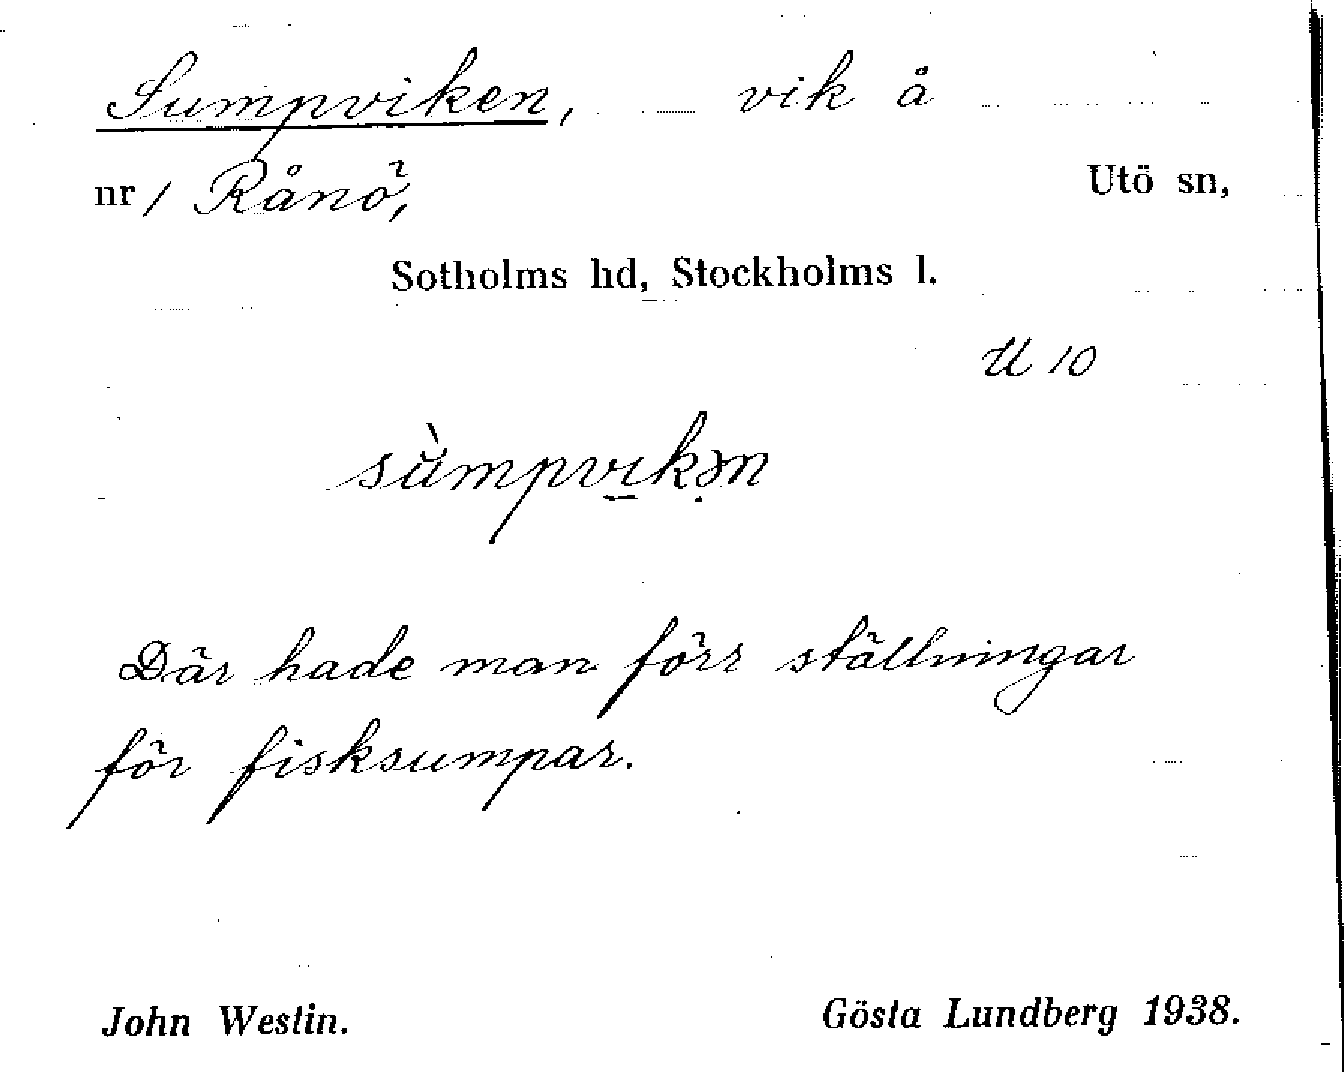 Sumpviken, vik å
nr 1 Rånö, Utö sn,
Sotholms hd, Stockholms l.
U 10
sùmpvı̲kə̣n
Där hade man förr ställningar
för fisksumpar.
John Westin. Gösta Lundberg 1938.